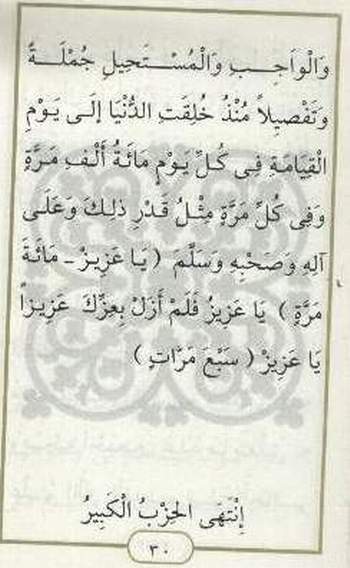 وَالْوَاجِـبِ وَالْمُسْـتَحِيلِ جُمْلَـةً
وَتَفْصِيلاً مُنْذُ خُلِقَتِ الدُّنْيَا إِلَى يَوْمِ
الْقِيَامَةِ فِى كُلِّ يَوْمٍ مَائَةُ أَلْـفِ مَرَّةٍ
وَفِى كُلِّ مَرَّةٍ مِثْـلُ قَدْرِ ذٰلِكَ وَعَلَـى
آلِهِ وَصَحْبِهِ وَسَلَّمَ ( يَـا عَزِيـزُ ـ مَائَـةَ
مَرَّةٍ ) يَا عَزِيزُ فَلَمْ أَزَلْ بِعِزِّكَ عَزِيـزاً
يَا عَزِيزْ ( سَبْعَ مَرَّاتٍ )
إِنْتَهَى الحِزْبُ الْكَبِيرُ
٣٠